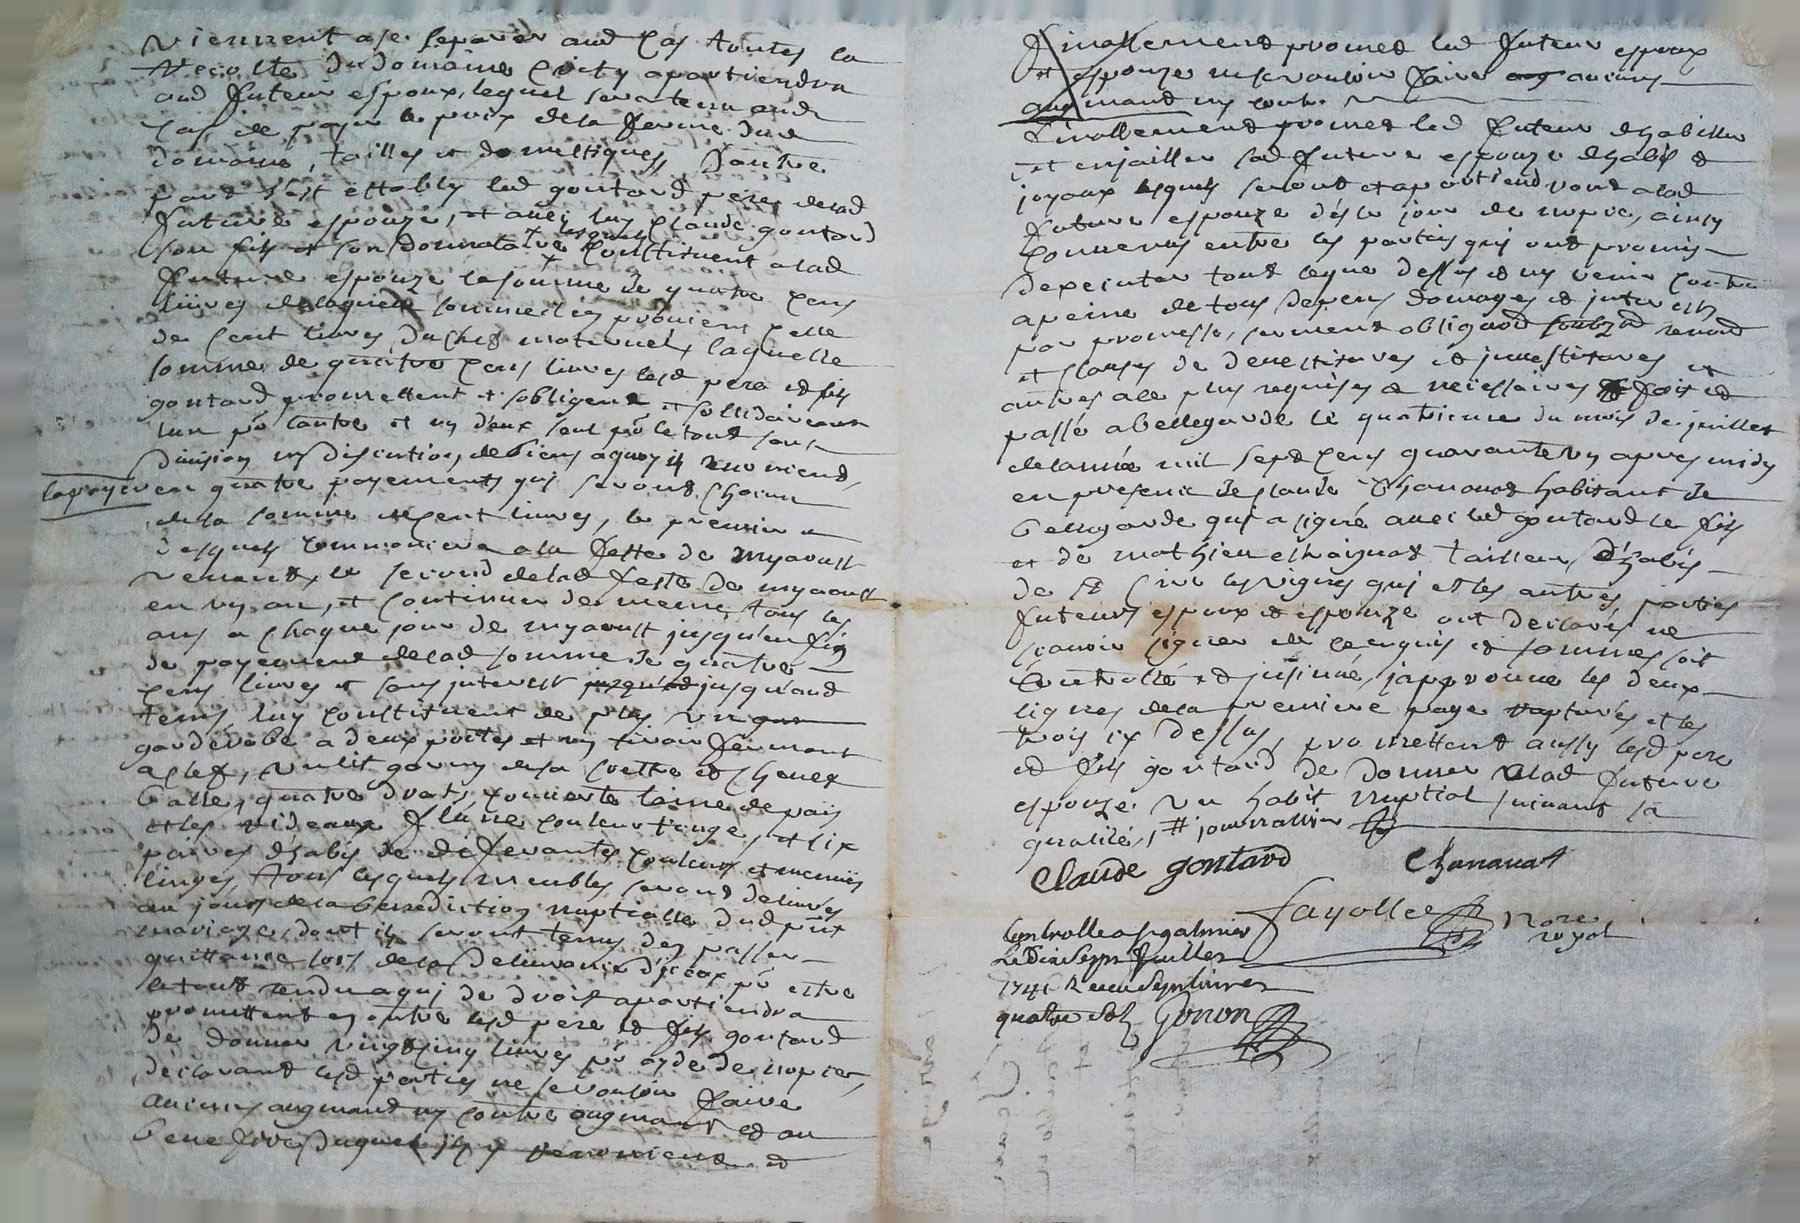 viennent a se separer aud cas toutes la
recolte dudomaine cicity apartiendra
aud futeur espoux, lequel sera tenu aud
cas de payer le prix dela ferme dud
domaine, tailles et domestiques, dautre
part s'est estably led gontard pere delad
future espouze, et avec luy claude gontard
son fils et son donnataire lesquels constituent alad
future espouze la somme de quatre cens
livres delaquelle somme il en provient celle
de cent livres, du chef maternel, laquelle
somme de quatre cens livres lesd pere et fils
gontard promettent et sobligent et sollidairement
lun pr lautre et un deux seul pr letout sans
division ny discution de biens a quoy ils renoncient,
la payer en quatre payements qui seront chacun
de la somme de cent livres, le premier
desquels commencera a la feste de myaoust
venant, le second delad feste de myaoust
en un an, et continuer de meme, tous les
ans a chaque jour de myaoust jusqu'en fin
de payement delad somme de quatre
cens livres et sans interest jusqu'aud
tems, luy constituent de plus un
garderobe a deux portes et un tiroir fermant
a clef, un lit garny de sa coettre et chevex
balle, quatre draps, couverte laine de païs
et les rideaux fleurie couleur rouge, et six
paires d'habis de differantes couleurs et menus
linges, tous lesquels meubles seront delivres
au jour de la benediction nuptialle dud pnt
mariage, dont ils seront tenus d'en passer
quittance lors dela delivrance d'iceux pr estre
letout rendu a qui de droit apartiendra
promettent en outre lesd pere et fils gontard
de donner vingt cinq livres pr ayde de nopces,
declarant lesd parties ne se vouloir faire
aucuns augmand ny contre augmant et au
benefice duquel ils y renoncient et
finallement promet led futeur espoux
et espouze ne se vouloir faire aucuns
augmand ny cont.
finallement promet led futeur d'habiller
et enjailler sad future espouze d'habis et
joyaux lesquels seront et apartiendront alad
future espouze dès le jour de nopce, ainsy
convenus entre les parties qui ont promis
d'executer tout ceque dessus et ny venir contre
a peine de tous depens domages et interests
par promesse, serment obligaon soubzon renon
et clauses de devestitures et investitures et
autres a ce plus requises et necessaires fait et
passé a bellegarde le quatrieme du mois de juillet
delannée mil sept cens quarante un apres midy
en presence de claude Chanavat habitant de
bellegarde qui a signé avec led gontard le fils
et de mathieu chaignat tailleur d'habis
de st Cire les vignes qui et les autres parties
futeurs espoux et espouze ont declarés ne
scavoir signer de ce enquis et sommés soit
controllé et insinué, japprouve les deux
lignes dela premiere page rapturés et les
trois cy dessus, promettent aussy lesd pere
et fils gontard de donner alad future
espouze un habit nuptial suivant sa
qualité, # journallier
Claude gontard Chanavat
fayolle Nore royal
Controlle a st galmier
le Dixsept Juillet
1741 Receu sept livres
quatre sols Gonon